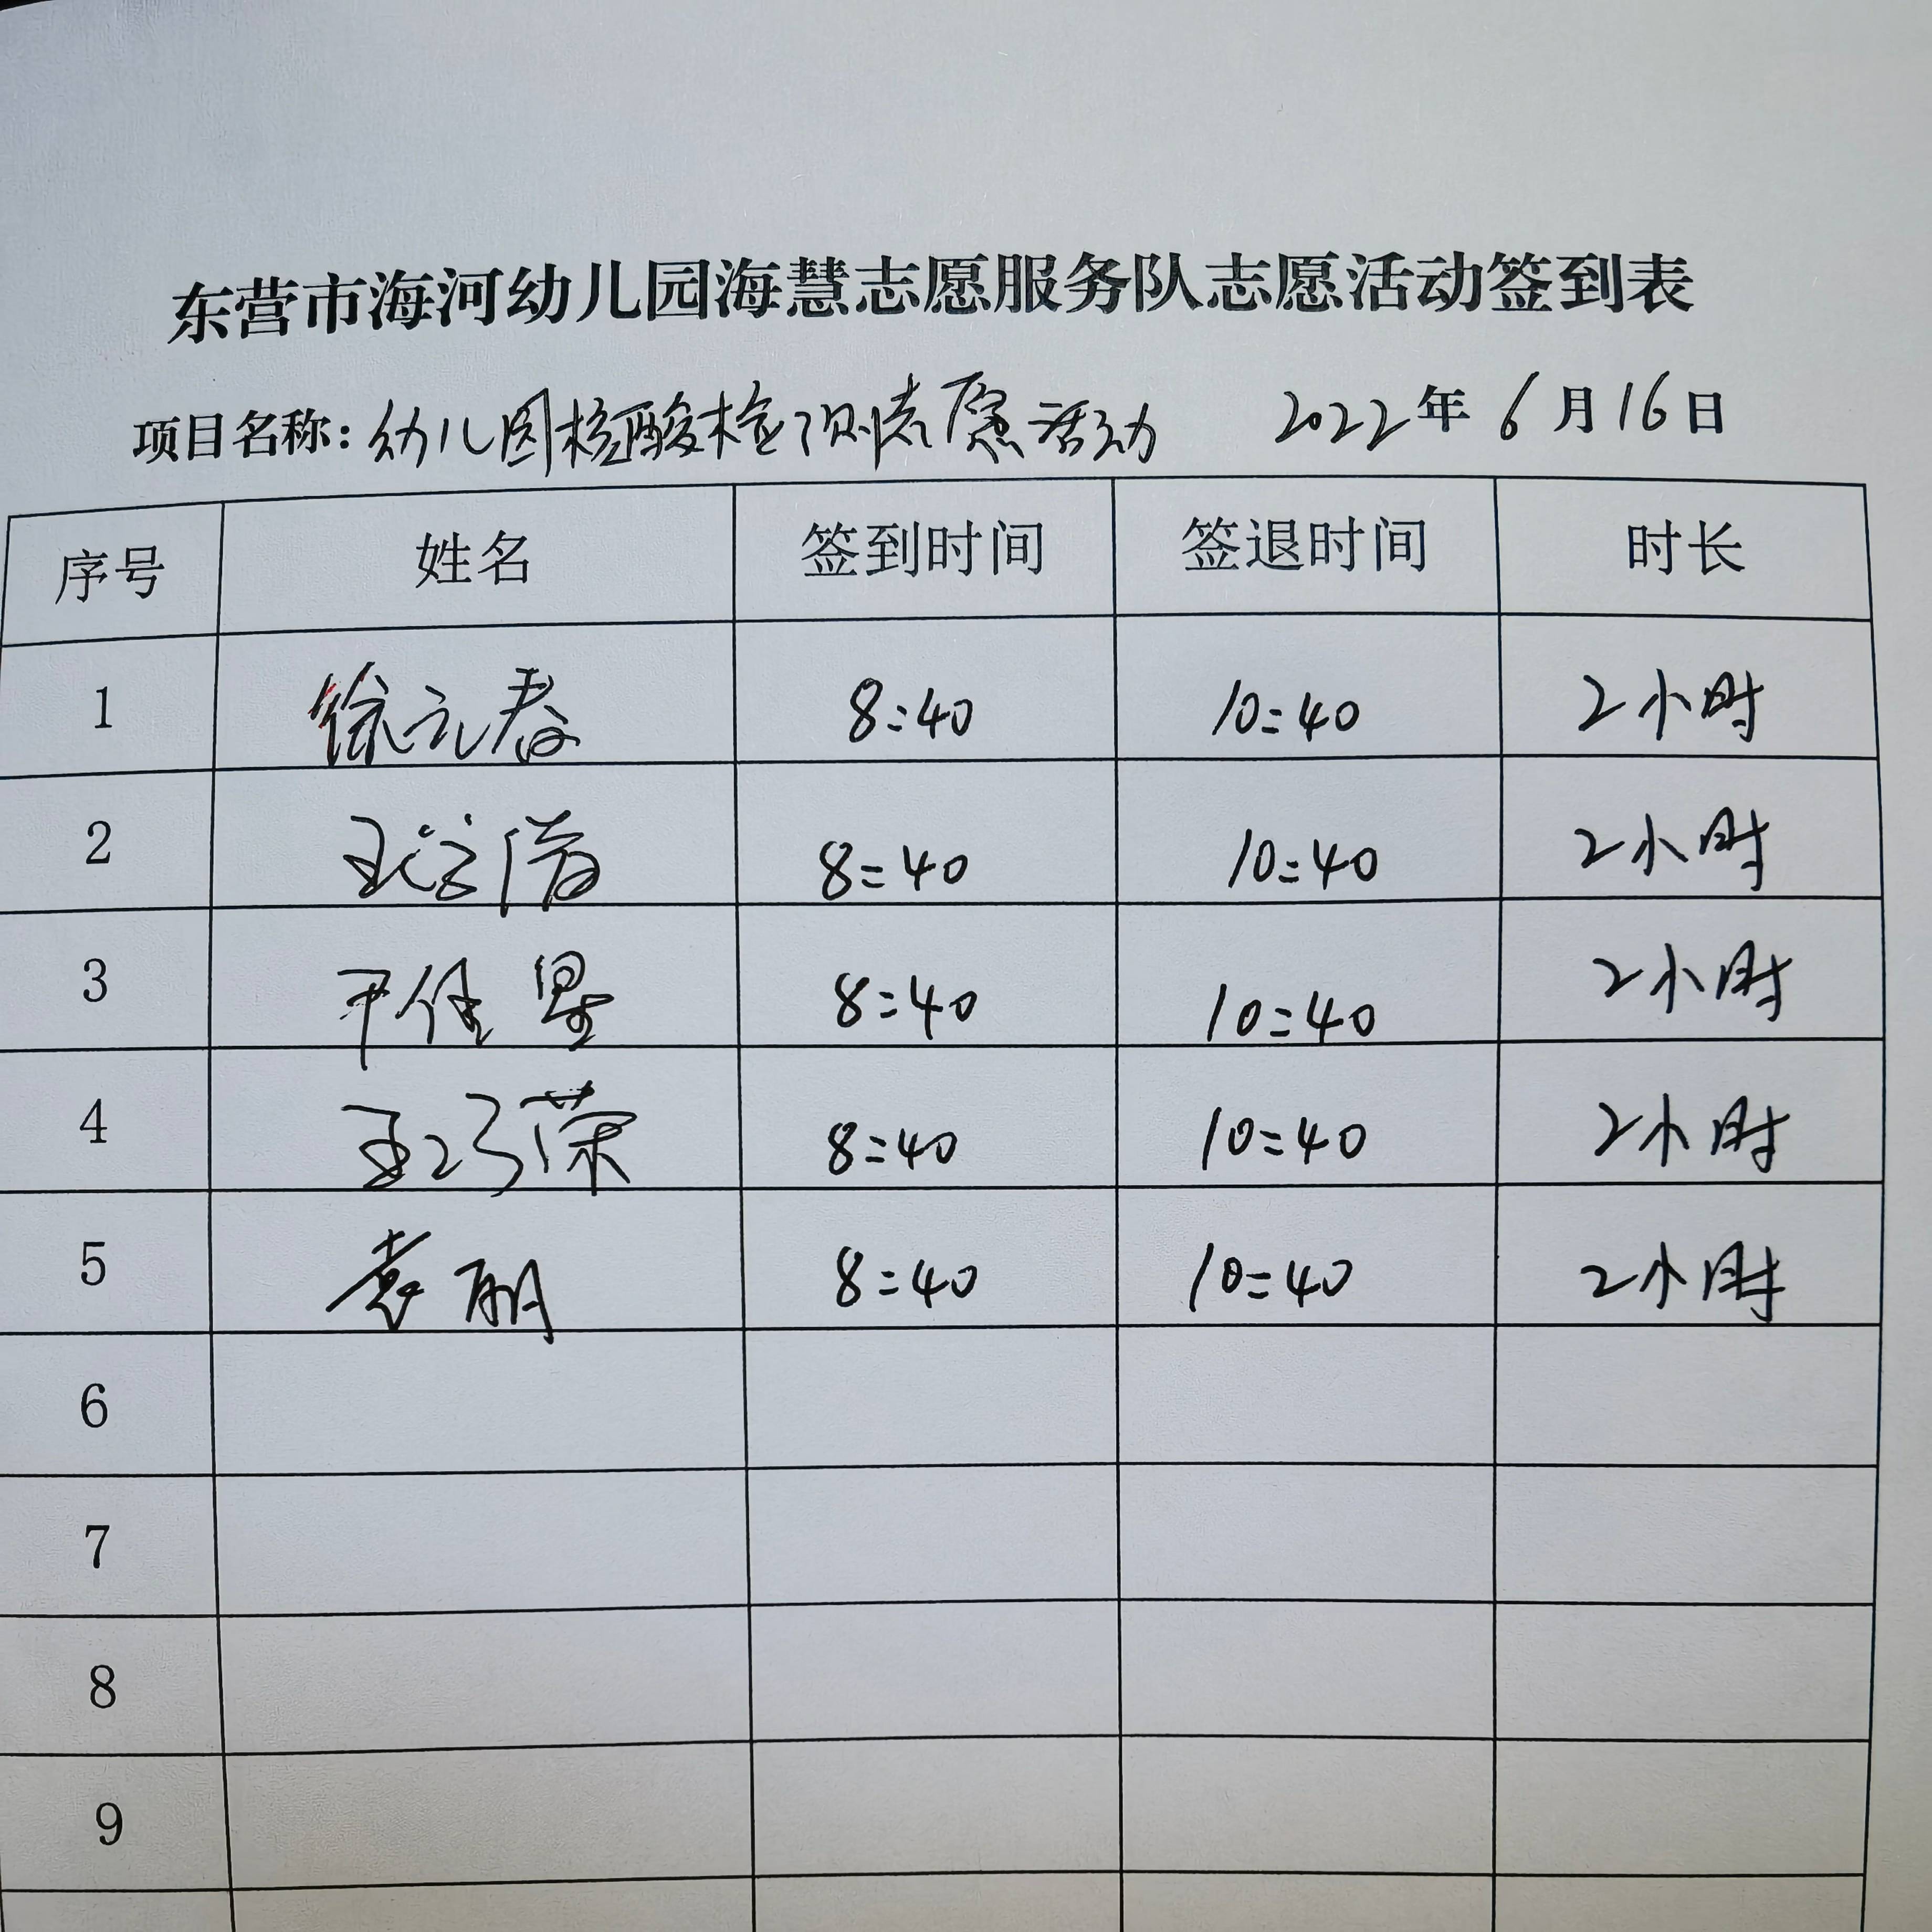 东营市海河幼儿园海慧志愿服务队志愿活动签到表
项目名称：幼儿园核酸检测志愿活动 2022年6月16日
序号 姓名 签到时间 签退时间 时长
1 徐元春 8:40 10:40 2小时
2 8:40 10:40 2小时
3 8:40 10:40 2小时
4 王巧荣 8:40 10:40 2小时
5 袁朋 8:40 10:40 2小时
6
7
8
9